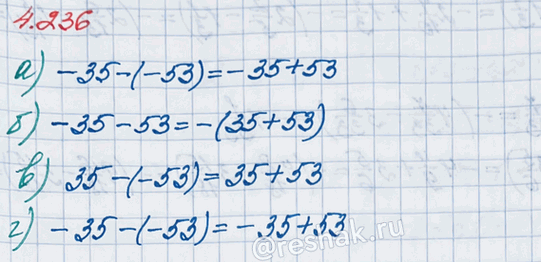 4.236
а) -35-(-53)=-35+53
б) -35-53=-(35+53)
в) 35-(-53)=35+53
г) -35-(-53)=-35+53
@reshak.ru